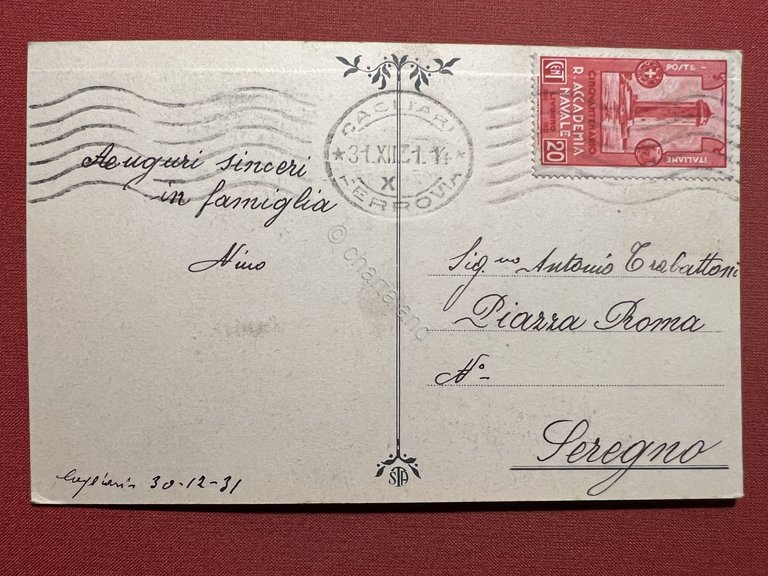 Auguri sinceri
in famiglia
Nino
Cagliari 30-12-31
CAGLIARI
31.XII.31.14
X
FERROVIA
POSTE
ITALIANE
CINQUANTENARIO
R. ACCADEMIA
NAVALE
LIVORNO
CENT 20
Sig.no Antonio Trabattoni
Piazza Roma
No-
Seregno
STA
© chartaland